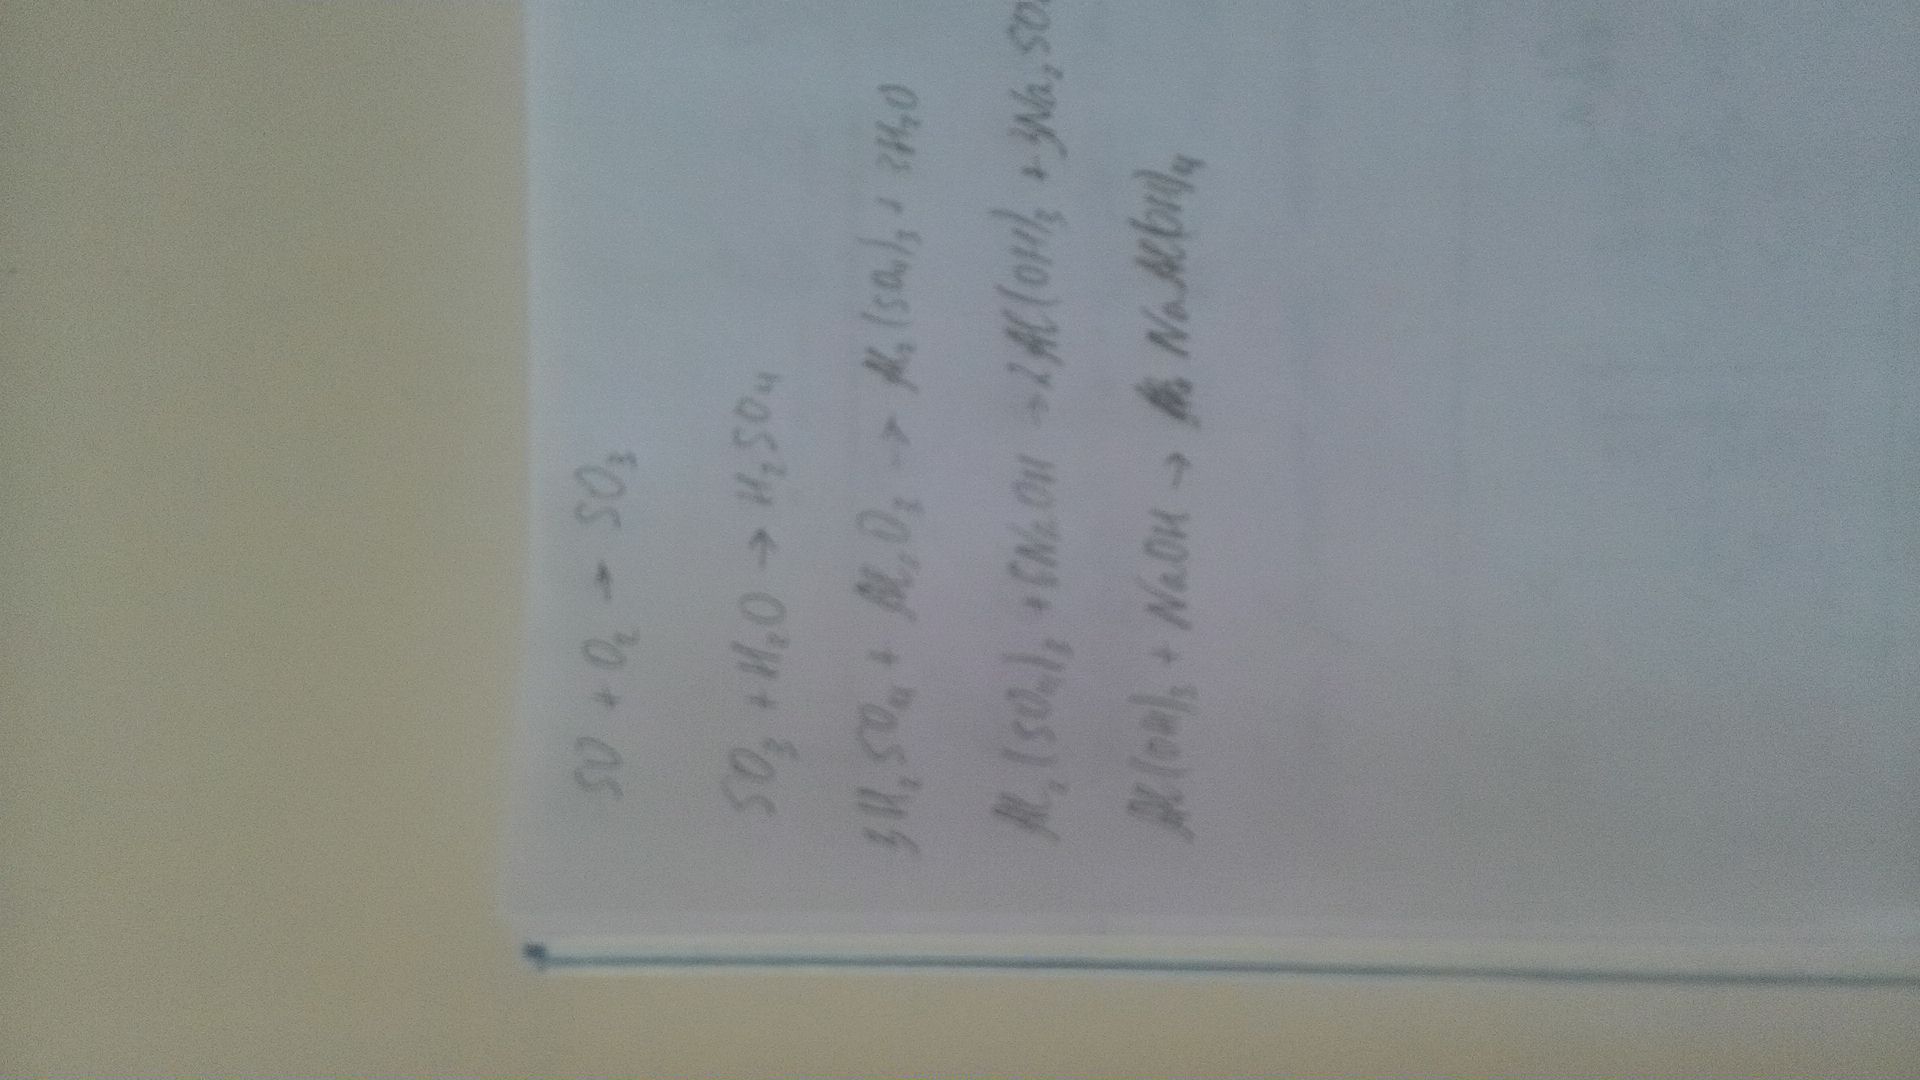 SO + O₂ → SO₃
SO₃ + H₂O → H₂SO₄
3H₂SO₄ + Al₂O₃ → Al₂(SO₄)₃ + 3H₂O
Al₂(SO₄)₃ + 6NaOH → 2Al(OH)₃ + 3Na₂SO
Al(OH)₃ + NaOH → NaAl(OH)₄